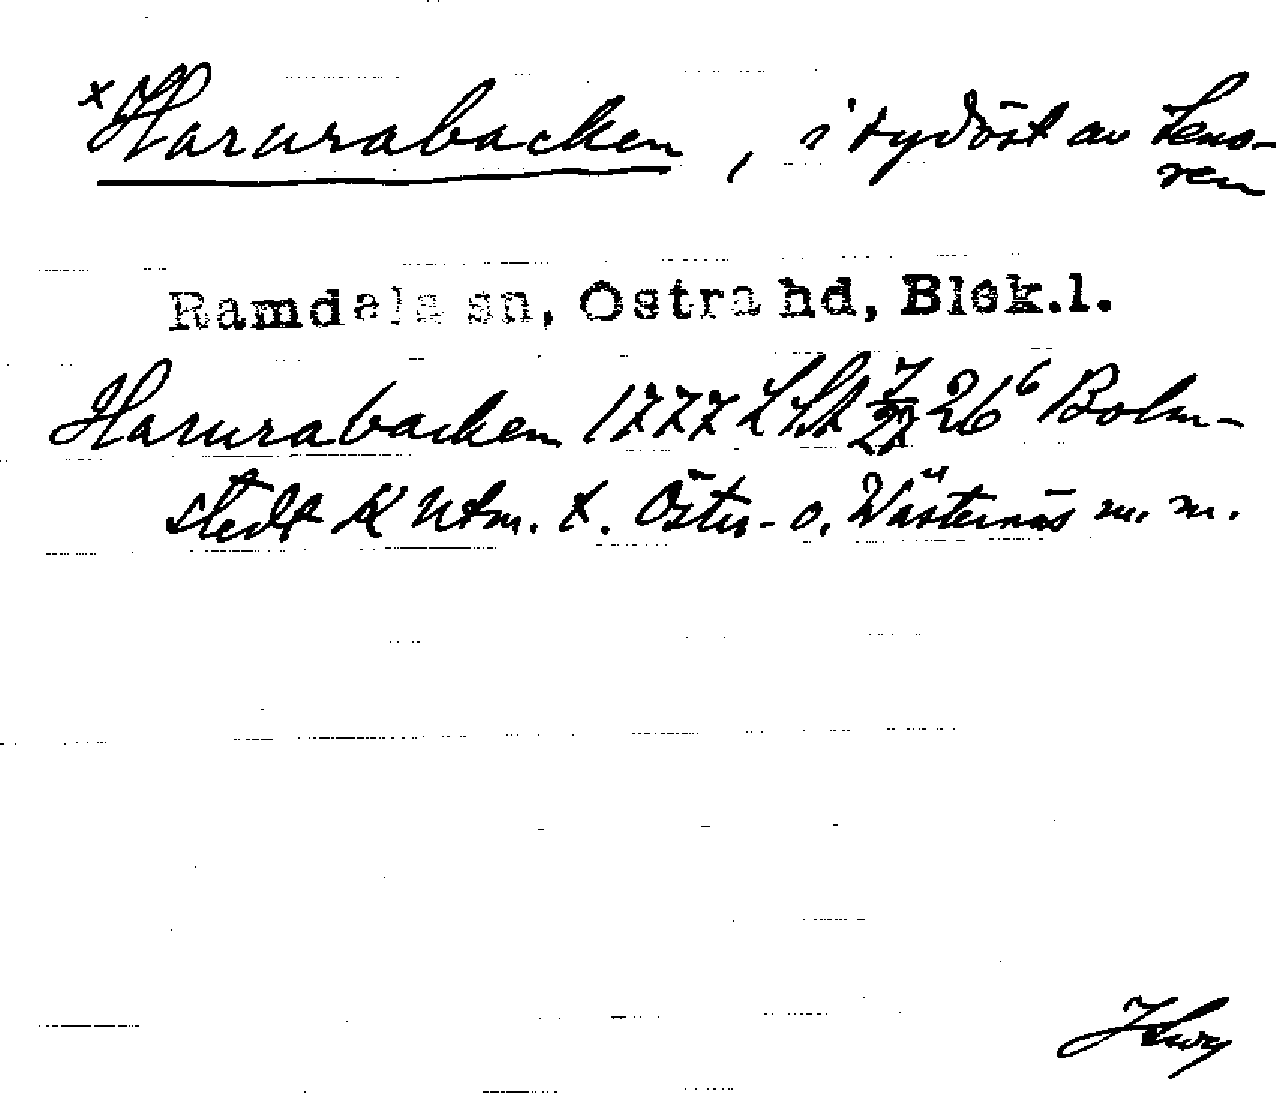 x Harurabacken, i sydöst av Leno-
ren
Ramdala sn, Östra hd, Blek.l.
Harurabacken 1777 LSA 26⁶ Bolm-
stedt K Utm. t. Öster- o. Wästernäs m. m.